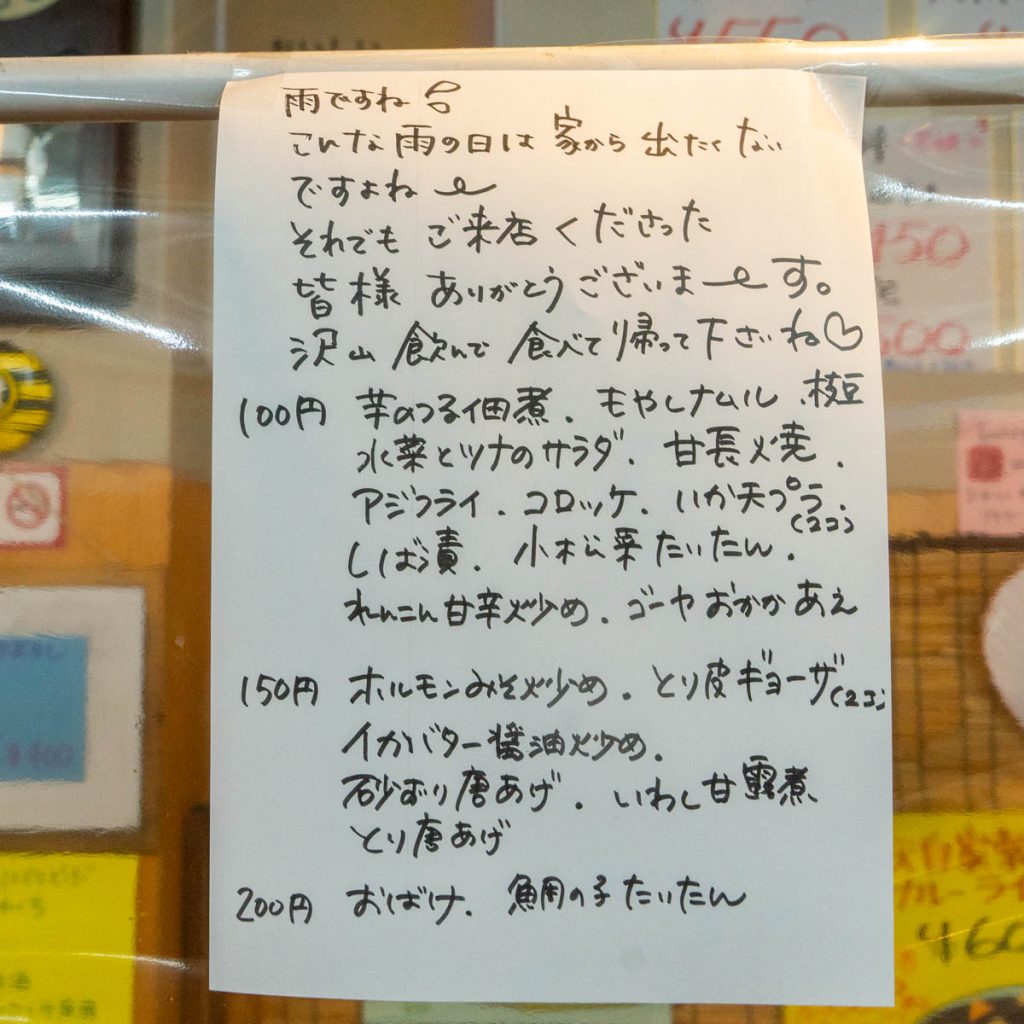 雨ですね
こんな雨の日は 家から 出たくない
ですよね
それでも ご来店くださった
皆様 ありがとうございまーす。
沢山 飲んで 食べて帰って下さいね♡
100円 芋のつる佃煮. もやしナムル .枝豆
水菜とツナのサラダ. 甘長火焼.
アジフライ. コロッケ. いか天プラ.
(2コ)
しば漬. 小松菜たいたん.
れんこん甘辛炒め. ゴーヤおかかあえ
150円 ホルモンみそ炒め. とり皮ギョーザ(2コ)
イカバター醤油炒め.
砂ずり唐あげ. いわし甘露煮
とり唐あげ
200円 おばけ. 鯛の子たいたん
¥550
450
500
¥460